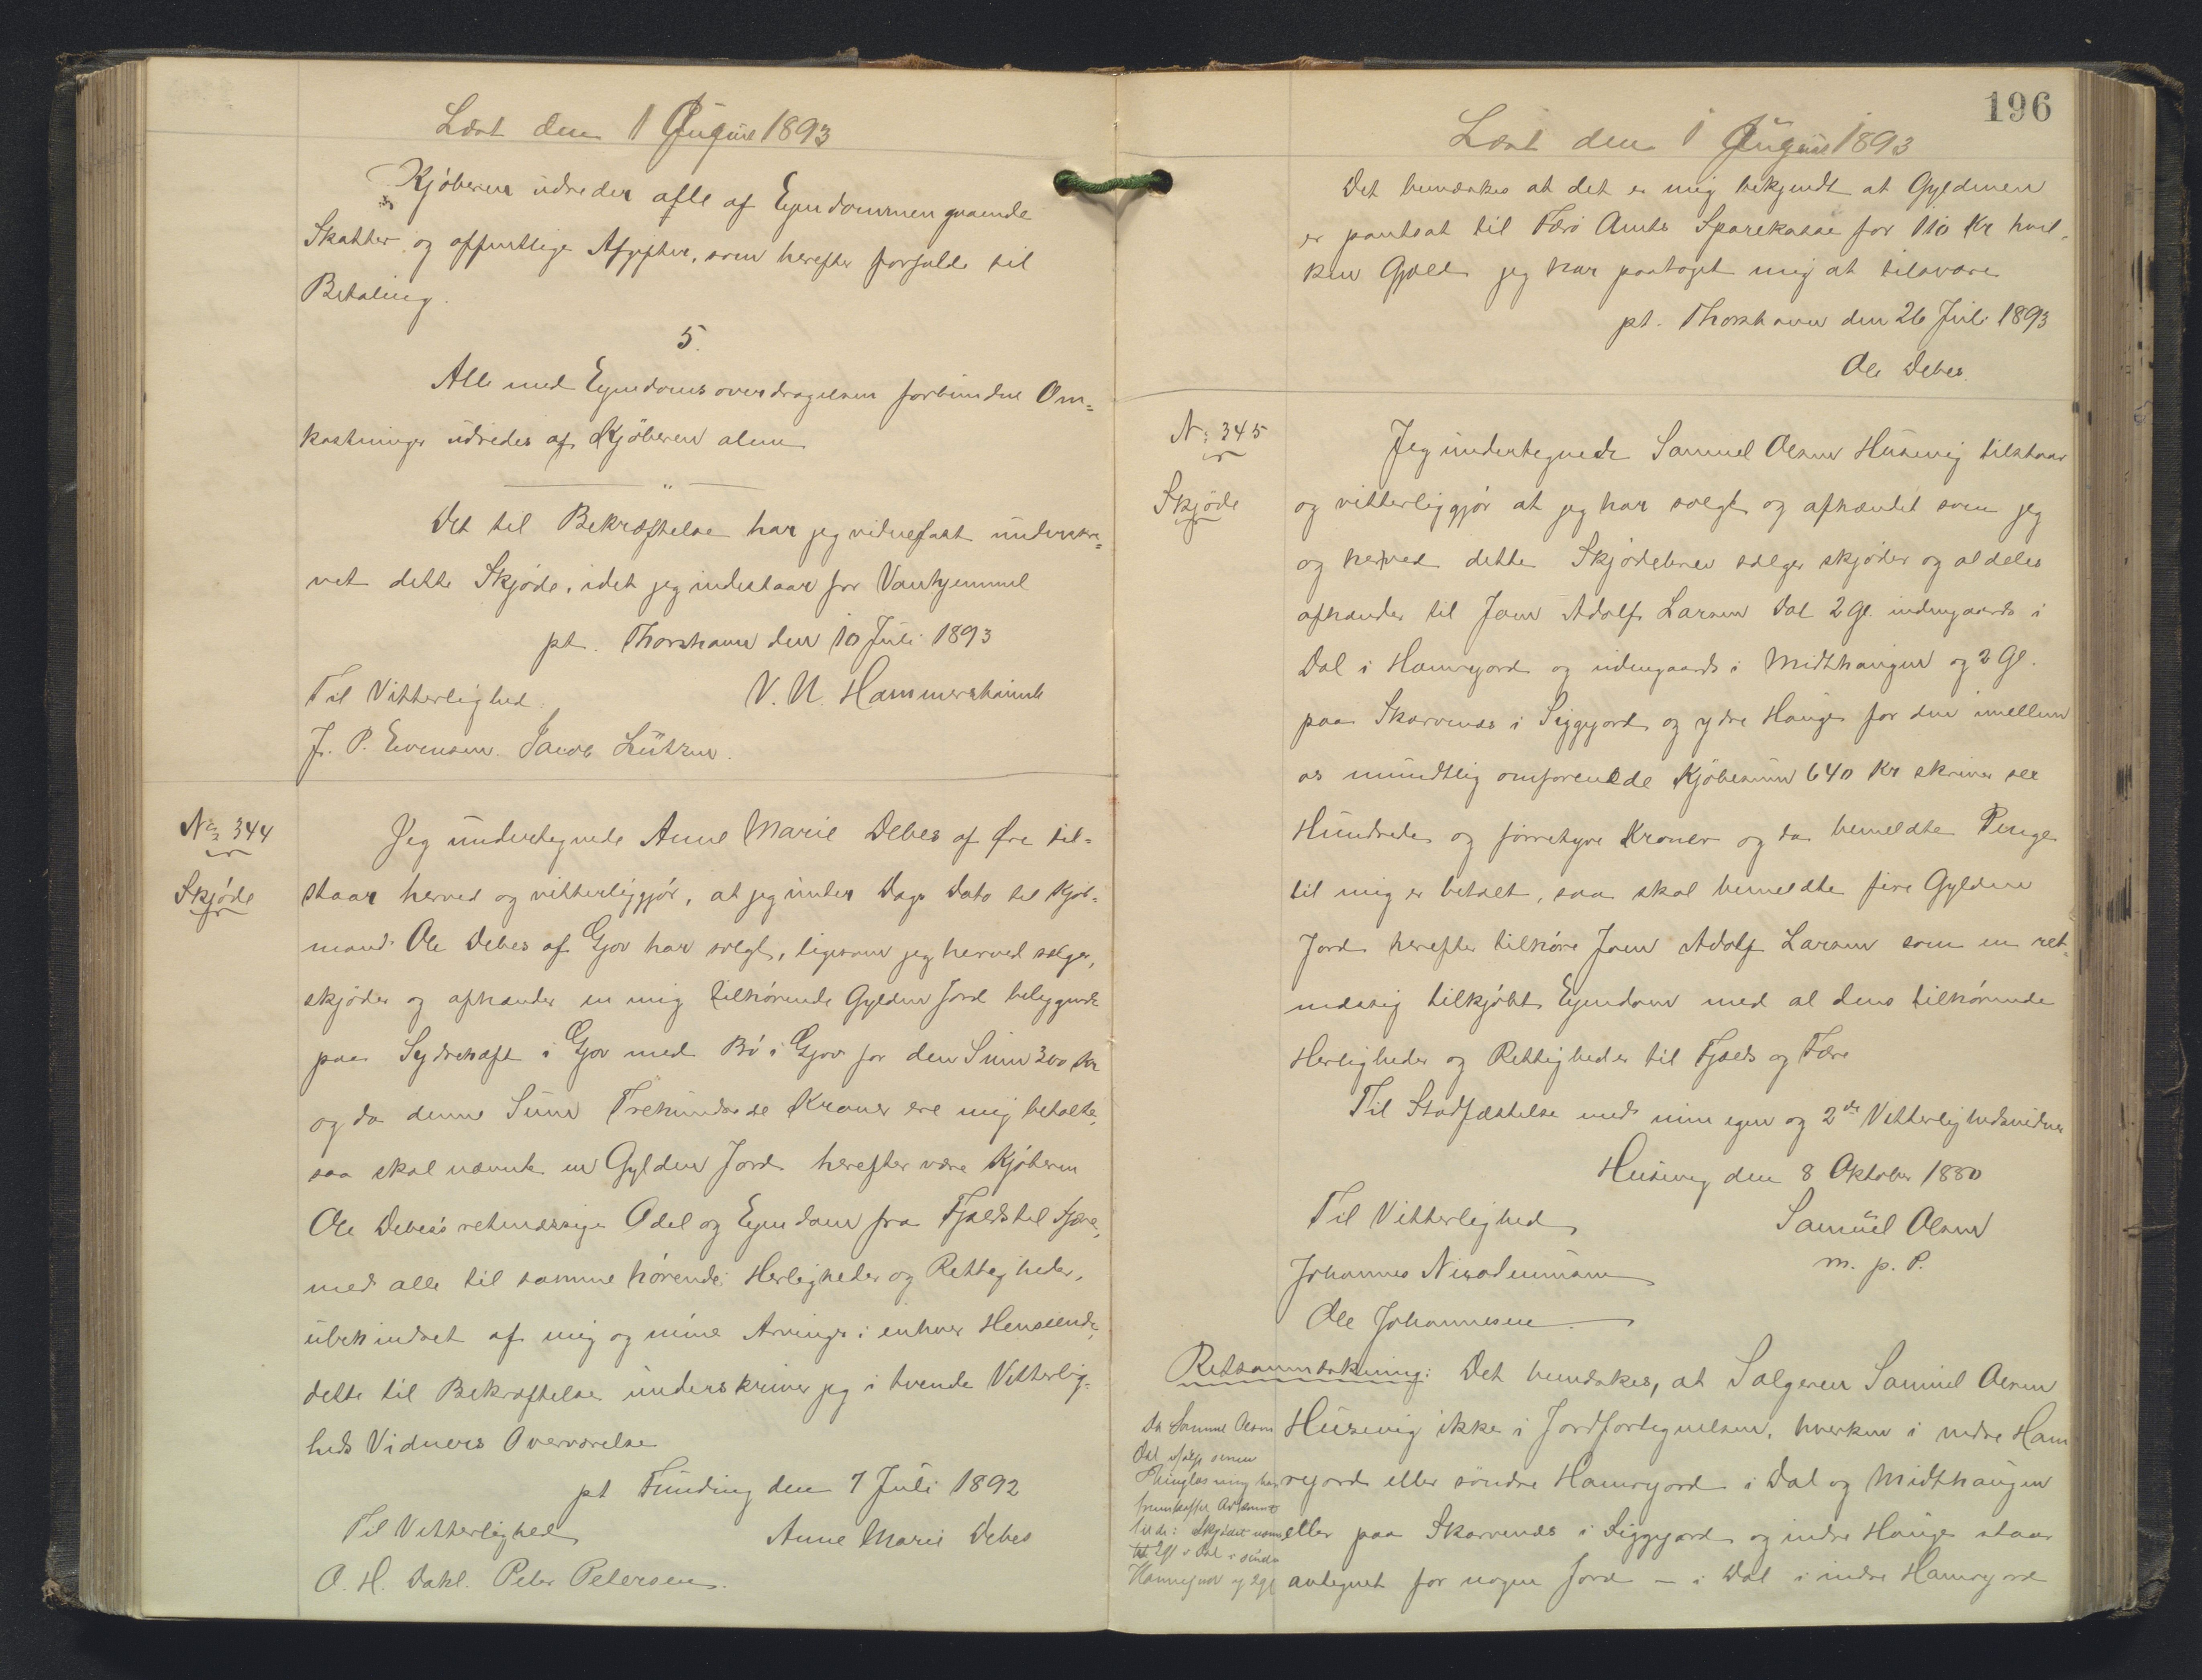 Læst den 1 August 1893
Kjøberen udreder alle af Ejendommen gaaende
Skatter og offentlige Afgifter, som herefter forfalde til
Betaling.
5.
Alle med Ejendomsoverdragelsen forbundne Om=
kostninger udredes af Kjøberen alene
Det til Bekræftelse har jeg vidnefast underskre=
vet dette Skjøde, idet jeg indestaar for Vanhjemmel
pt. Thorshavn den 10 Juli 1893
Til Vitterlighed. V. U. Hammershaimb
J. P. Evensen. Jacob Lützen.
No 344
Skjøde
Jeg undertegnede Anne Marie Debes af Øre til=
staar herved og vitterliggjør, at jeg under Dags Dato til Kjøb=
mand Ole Debes af Gjov har solgt, ligesom jeg herved sælger,
skjøder og afhænder en mig tilhørende Gylden Jord beliggende
paa Sydrehaft i Gjov med Bø i Gjov for den Sum 300 Kr
og da denne Sum Trehundrede Kroner ere mig betalte,
saa skal nævnte en Gylden Jord herefter være Kjøberen
Ole Debes's retmæssige Odel og Ejendom fra Fjelds til Fjære,
med alle til samme hørende Herligheder og Rettigheder,
ubehindret af mig og mine Arvinger i enhver Henseende,
dette til Bekræftelse underskriver jeg i tvende Vitterlig=
heds Vidners Overværelse
pt Funding den 7 Juli 1892
Til Vitterlighed Anne Marie Debes
O. H. Dahl. Peter Petersen.
196
Læst den 1 August 1893
Det bemærkes at det er mig bekjendt at Gyldenen
er pantsat til Færø Amts Sparekasse for 110 Kr hvil-
ken Gjæld jeg har paataget mig at tilsvare
pt. Thorshavn den 26 Juli 1893
Ole Debes.
No 345
Skjøde
Jeg undertegnede Samuel Olesen Husevig tilstaar
og vitterliggjør at jeg har solgt og afhændet som jeg
og herved dette Skjødebrev sælger skjøder og aldeles
afhænder til Joen Adolf Larsen Dal 2 Gl. indengaards i
Dal i Hamregjord og udengaards i Midthaugen og 2 Gl.
paa Skarvenes i Siggjord og ydre Hauge for den imellem
os mundtlig omforenede Kjøbesum 640 Kr skriver sex
Hundrede og førretyve Kroner og da bemeldte Penge
til mig er betalt, saa skal bemeldte fire Gylden
Jord herefter tilhøre Joen Adolf Larsen som en ret-
mæssig tilkjøbt Ejendom med al dens tilhørende
Herligheder og Rettigheder til Fjelds og Fære
Til Stadfæstelse med min egen og 2de Vitterlighedsvidner
Husevig den 8 Oktober 1880
Til Vitterlighed Samuel Olesen
Johannes Nicodemussen m. p. P.
Ole Johannesen
Retsanmærkning: Det bemærkes, at Sælgeren Samuel Olesen
Husevig ikke i Jordfortegnelsen, hverken i nedre Ham
regjord eller søndre Hamregjord i Dal og Midthaugen
eller paa Skarvenes i Siggjord og indre Hauge staar
antegnet for nogen Jord – i Dal i indre Hamregjord
Da Samuel Olesen
Dal ifølge senere
Thinglæsning har
2 Gl i Dal i
Hamregjord og 2 Gl